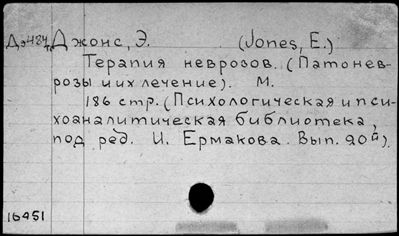 Дэ484 Джонс, Э. (Jones, E.)
Терапия неврозов. (Патонев-
розы и их лечение). М.
186 стр. (Психологическая и пси-
хоаналитическая библиотека,
под ред. И. Ермакова. Вып. 20й).
16451